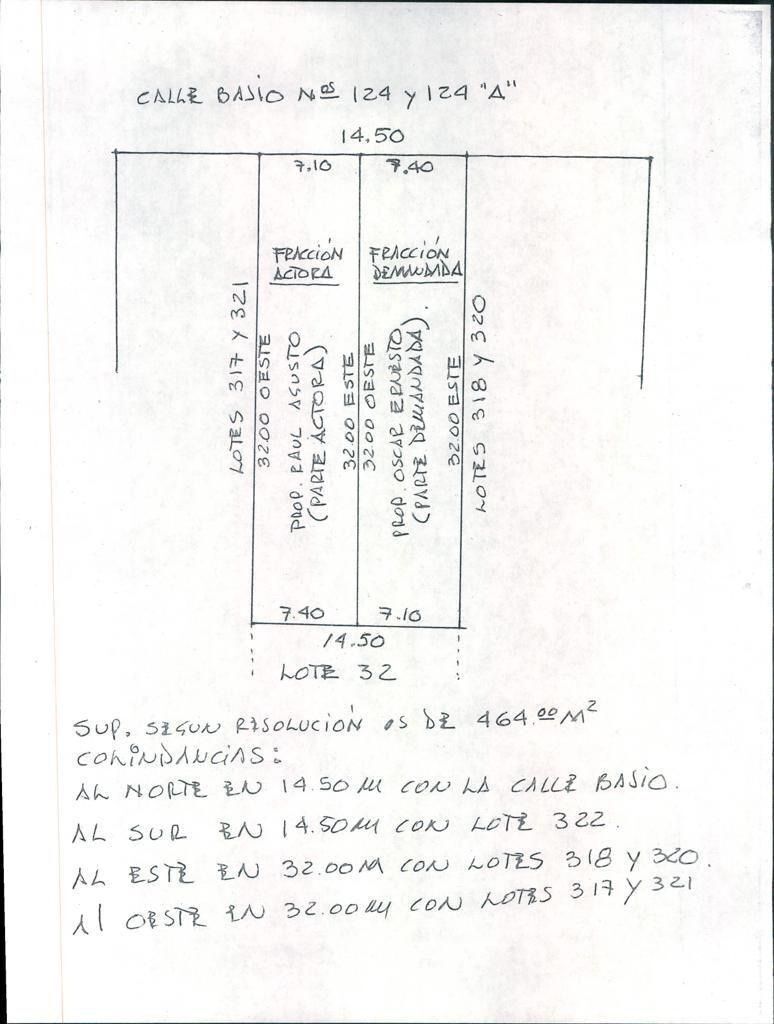 CALLE BASIO Nos 124 y 124 "A"
14.50
7.10
7.40
FRACCIÓN
ACTORA
FRACCIÓN
DEMANDADA
LOTES 317 Y 321
32.00 OESTE
PROP. RAUL AGUSTO
(PARTE ACTORA)
32.00 ESTE
32.00 OESTE
PROP. OSCAR ERNESTO
(PARTE DEMANDADA).
32.00 ESTE
LOTES 318 Y 320
7.40
7.10
14.50
LOTE 32
SUP. SEGUN RESOLUCIÓN es DE 464.00 M²
COLINDANCIAS:
AL NORTE EN 14.50 M CON LA CALLE BASIO.
AL SUR EN 14.50 M CON LOTE 322.
AL ESTE EN 32.00 M CON LOTES 318 Y 320.
Al OESTE EN 32.00 M CON LOTES 317 Y 321